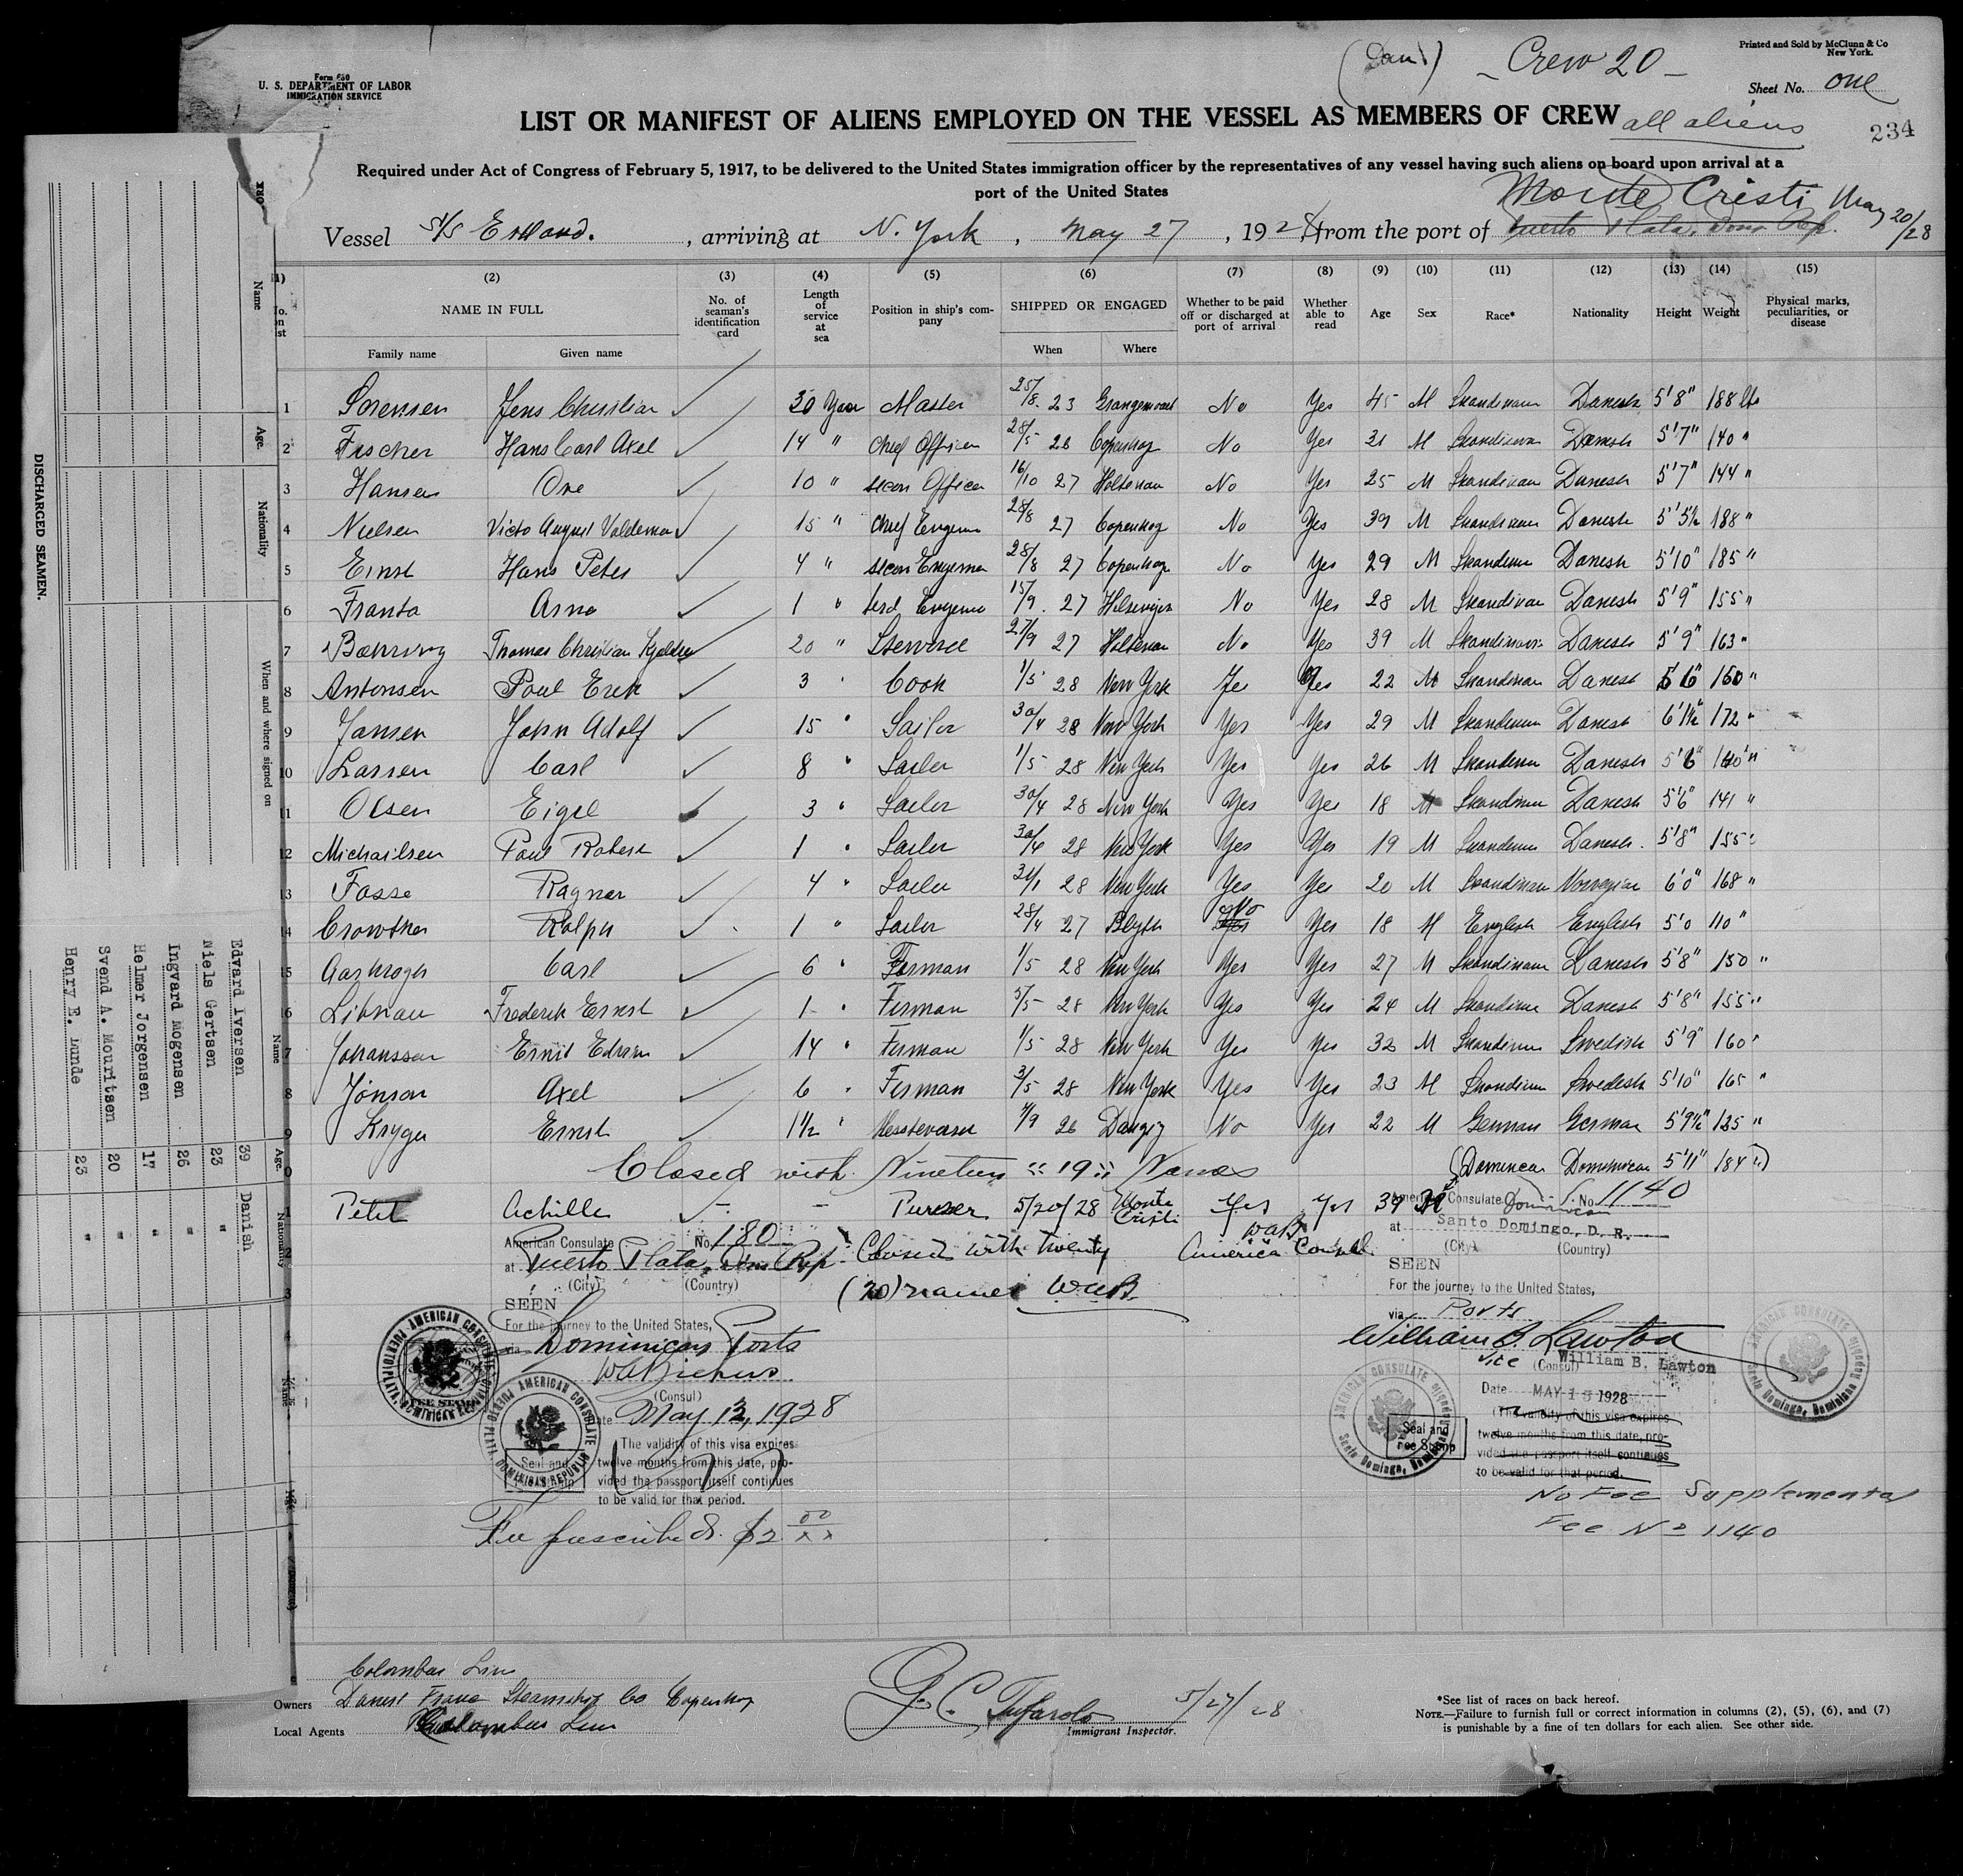 (Dan) - Crew 20 -
Printed and Sold by McClunn & Co
New York.
Form 680
U. S. DEPARTMENT OF LABOR
IMMIGRATION SERVICE
Sheet No. one
LIST OR MANIFEST OF ALIENS EMPLOYED ON THE VESSEL AS MEMBERS OF CREW all aliens
234
Required under Act of Congress of February 5, 1917, to be delivered to the United States immigration officer by the representatives of any vessel having such aliens on board upon arrival at a
port of the United States
Monte Cristi May 20/28
Vessel S/S , arriving at N. York , May 27 , 1928, from the port of Puerto Plata, Dom Rep.
(2) (3) (4) (5) (6) (7) (8) (9) (10) (11) (12) (13) (14) (15)
NAME IN FULL
Family name Given name
No. of seaman's identification card
Length of service at sea
Position in ship's company
SHIPPED OR ENGAGED
When Where
Whether to be paid off or discharged at port of arrival
Whether able to read
Age Sex Race* Nationality Height Weight
Physical marks, peculiarities, or disease
1 Sorensen Jens Christian ✓ 30 Year Master 25/8 23 No Yes 45 M Danesh 5'8" 188 lbs
2 Fischer Hans Carl Axel ✓ 14 " Chief Officer 28/5 28 Copenhag No Yes 31 M Danesh 5'7" 140 "
3 Hansen Ove ✓ 10 " secon Officer 16/10 27 Holtenau No Yes 25 M Danesh 5'7" 144 "
4 Nielsen Victo August Valdemar ✓ 15 " Chief 28/8 27 Copenhag No Yes 39 M Danesh 5'5½ 188 "
5 Ernst Hans Peter ✓ 4 " secon 28/8 27 Copenhag No Yes 29 M Danesh 5'10" 185 "
6 Franta Arno ✓ 1 " 15/9 27 No Yes 28 M Danesh 5'9" 155 "
7 Thomas Christian ✓ 20 " 27/9 27 Holtenau No Yes 39 M Danesh 5'9" 163 "
8 Antonsen Poul Erik ✓ 3 " Cook 1/5 28 New York Yes Yes 22 M Danesh 5'6" 150 "
9 Jansen John Adolf ✓ 15 " Sailor 30/4 28 New York Yes Yes 29 M Danesh 6'1½" 172 "
10 Larsen Carl ✓ 8 " Sailer 1/5 28 New York Yes Yes 26 M Danesh 5'6" 140 "
11 Olsen Eigel ✓ 3 " Sailer 30/4 28 New York Yes Yes 18 M Danesh 5'6" 141 "
12 Michailsen Poul Robert ✓ 1 " Sailer 30/4 28 New York Yes Yes 19 M Danesh 5'8" 155 "
13 Fosse Ragnar ✓ 4 " Sailer 28 New York Yes Yes 20 M Norvegian 6'0" 168 "
14 Crowther Ralph ✓ 1 " Sailer 28/4 27 Blyth No Yes 18 M English English 5'0 110 "
15 Carl ✓ 6 " Firman 1/5 28 New York Yes Yes 27 M Danesh 5'8" 150 "
16 Libnau Frederik Ernst ✓ 1 " Firman 5/5 28 New York Yes Yes 24 M Danesh 5'8" 155 "
7 Johansson Ernst Edvin ✓ 14 " Firman 1/5 28 New York Yes Yes 32 M Swedish 5'9" 160 "
8 Jonson Axel ✓ 6 " Firman 3/5 28 New York Yes Yes 23 M Swedesh 5'10" 165 "
9 Kryger Ernst ✓ 1½ " 26 Danzig No Yes 22 M German German 5'9½" 135 "
0 Closed with Nineteen "19" Names (Dominican Dominican 5'11" 184 ")
1 Petit Achille ✓ - - Purser 5/20/28 Monte Cristi Yes Yes 39 M
American Consulate No. 180
at Puerto Plata, Dom Rep.
(City) (Country)
Closed with twenty
(20) names WAB
WAB
America Consul.
SEEN
For the journey to the United States,
via Dominican Ports
WABickers
(Consul)
Date May 12, 1928
The validity of this visa expires
twelve months from this date, provided
the passport itself continues
to be valid for that period.
AMERICAN CONSULATE PUERTO PLATA, DOMINICAN REPUBLIC
Fee prescribed. $2 00/xx
American Consulate No. 1140
at Santo Domingo, D. R.
(City) (Country)
SEEN
For the journey to the United States,
via Ports
William B. Lawton
Vice (Consul) William B. Lawton
Date MAY 15 1928
(The validity of this visa expires
twelve months from this date, provided
the passport itself continues
to be valid for that period.
Seal and
Fee Stamp
AMERICAN CONSULATE Santo Domingo, Dominican Republic
No Fee Supplemental
Fee No 1140
DISCHARGED SEAMEN.
Name Age. Nationality When and where signed on
Name Age. Nationality
Edvard Iversen 39 Danish
Niels Gertsen 23 "
Ingvard Mogensen 26 "
Helmer Jorgensen 17 "
Svend A. Mouritsen 20 "
Henry E. Lunde 23 "
Colombus Line
Owners Danest Franc Steamship Co Copenhag
Local Agents Colombus Line
G. C. Tufarolo 5/27/28
Immigrant Inspector.
*See list of races on back hereof.
NOTE.—Failure to furnish full or correct information in columns (2), (5), (6), and (7)
is punishable by a fine of ten dollars for each alien. See other side.